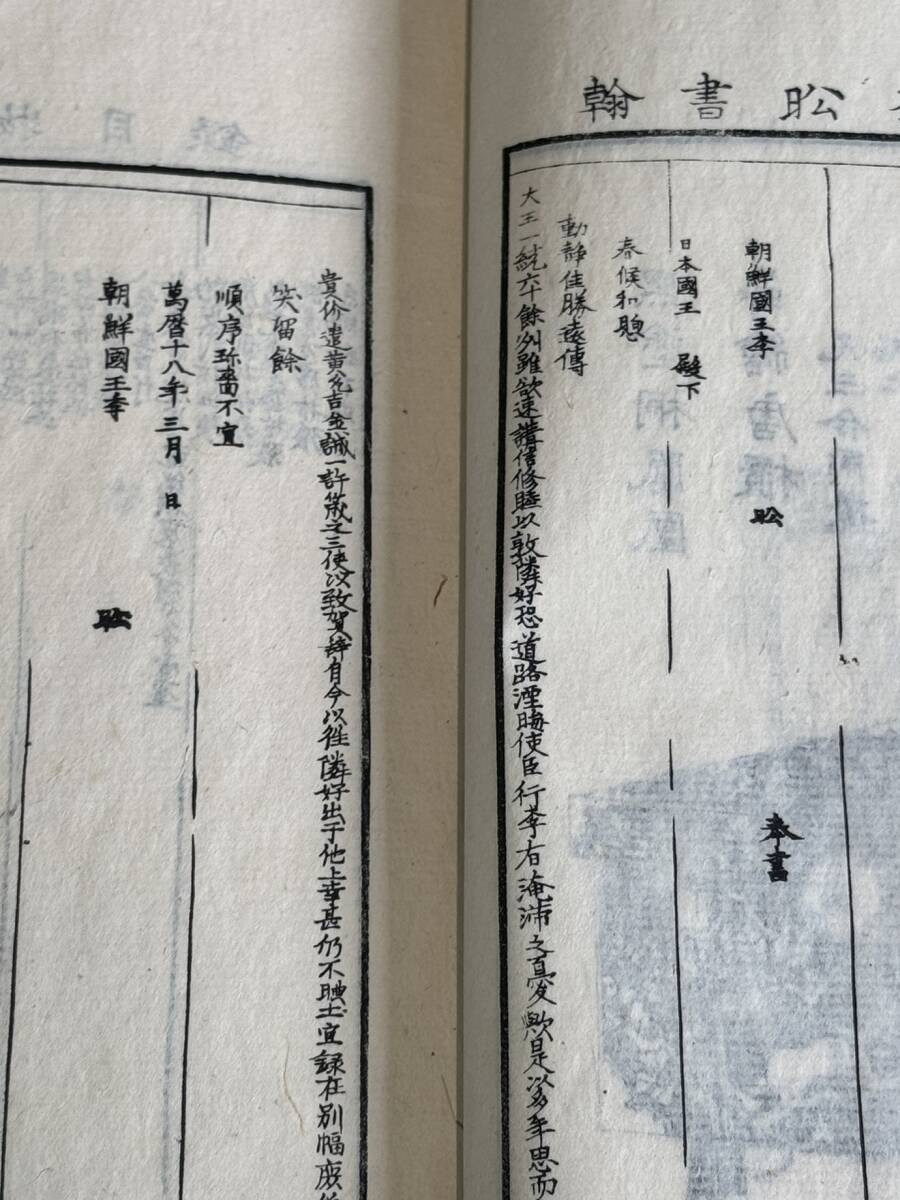 昖書翰
朝鮮國王李 昖 奉書
日本國王 殿下
春候和煦
動静佳勝遠傳
大王一統六十餘州雖欲速講信修睦以敦隣好恐道路湮晦使臣行李有淹滞之憂歟是以多年思而
貴价遣黄允吉金誠一許筬之三使以致賀辞自今以往隣好出于他上幸甚仍不腆土宜録在別幅庶
笑留餘
順序珎嗇不宣
萬暦十八年三月 日
朝鮮國王李 昖